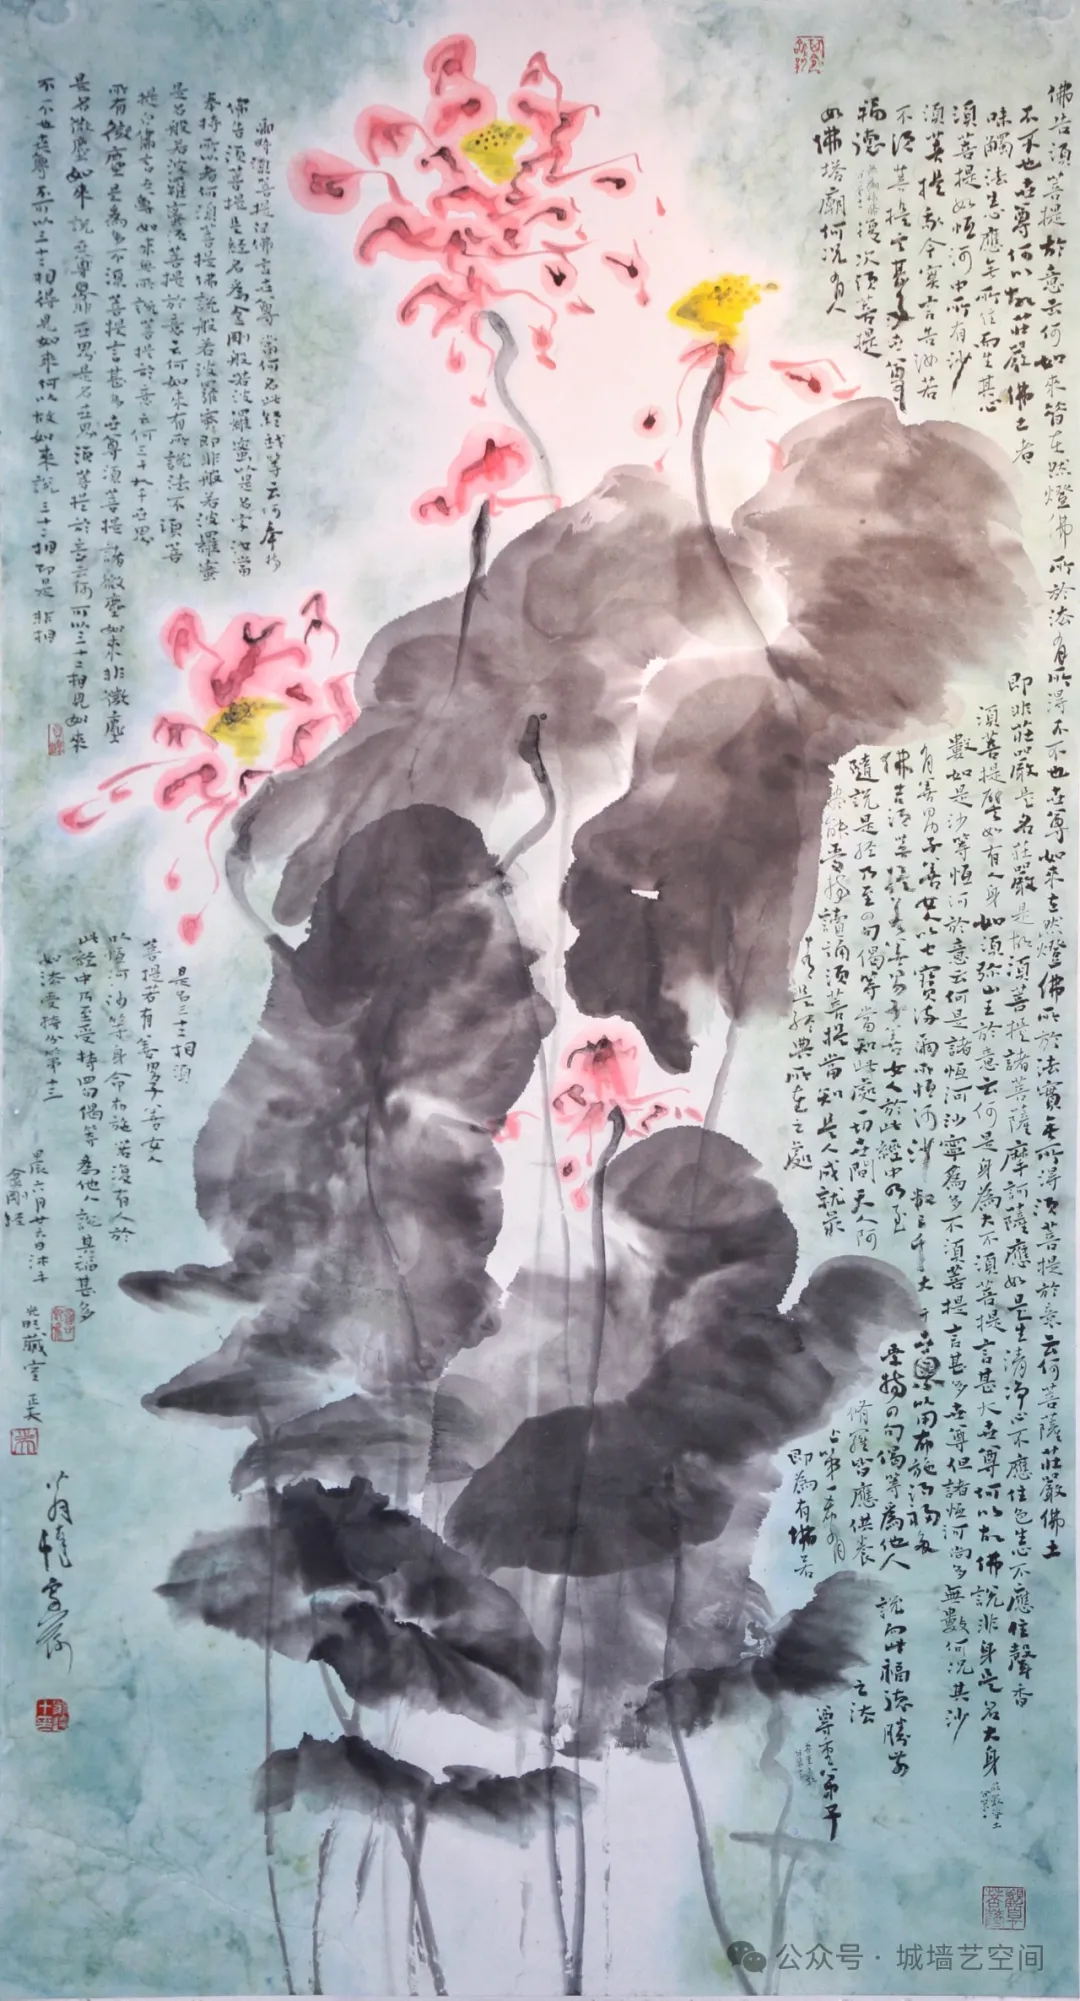 佛告須菩提於意云何如來昔在然燈佛所於法有所得不不也世尊如來在然燈佛所於法實无所得須菩提於意云何菩薩莊嚴佛土
不不也世尊何以故莊嚴佛土者
即非莊嚴是名莊嚴是故須菩提諸菩薩摩訶薩應如是生清淨心不應住色生心不應住聲香
味觸法生心應无所住而生其心
須菩提譬如有人身如須弥山王於意云何是身為大不須菩提言甚大世尊何以故佛說非身是名大身
須菩提如恒河中所有沙
數如是沙等恒河於意云何是諸恒河沙寧為多不須菩提言甚多世尊但諸恒河尚多無數何況其沙
須菩提我今實言告汝若
有善男子善女人以七寶滿爾所恒河沙數三千大千世界以用布施得福多
不須菩提言甚多世尊
佛告須菩提若善男子善女人於此經中乃至
受持四句偈等為他人
說而此福德勝前
福德
復次須菩提
隨說是經乃至四句偈等當知此處一切世間天人阿
脩羅皆應供養
如佛塔廟何況有人
盡能受持讀誦須菩提當知是人成就最
上第一希有
之法
若是經典所在之處
即為有佛若
尊重弟子
爾時須菩提白佛言世尊當何名此經我等云何奉持
佛告須菩提是經名為金剛般若波羅蜜以是名字汝當
奉持所以者何須菩提佛說般若波羅蜜即非般若波羅蜜
是名般若波羅蜜須菩提於意云何如來有所說法不須菩
提白佛言世尊如來無所說須菩提於意云何三千大千世界
所有微塵是為多不須菩提言甚多世尊須菩提諸微塵如來說非微塵
是名微塵如來說世界非世界是名世界須菩提於意云何可以三十二相見如來
不不也世尊不可以三十二相得見如來何以故如來說三十二相即是非相
是名三十二相須
菩提若有善男子善女人
以恒河沙等身命布施若復有人於
此經中乃至受持四句偈等為他人說其福甚多
如法受持分第十三
金剛經
公众号·城墙艺空间